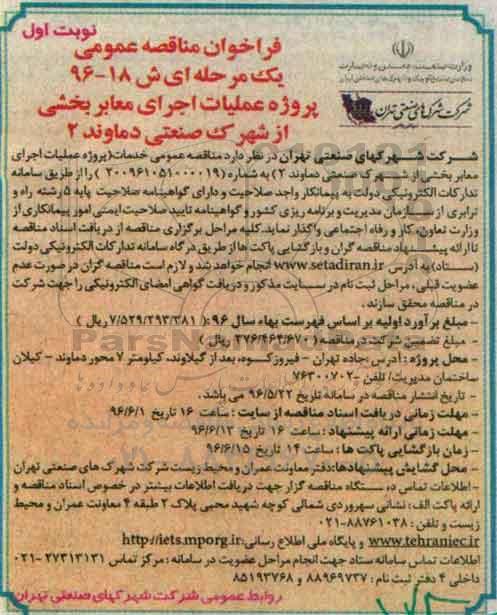 نوبت اول
فراخوان مناقصه عمومی
یک مرحله ای ش ۱۸-۹۶
پروژه عملیات اجرای معابر بخشی
از شهرک صنعتی دماوند ۲
وزارت صنعت، معدن و تجارت
شرکت شهرکهای صنعتی تهران
شرکت شهرکهای صنعتی تهران در نظر دارد مناقصه عمومی خدمات (پروژه عملیات اجرای
معابر بخشی از شهرک صنعتی دماوند ۲) به شماره (۲۰۰۹۶۱۰۵۱۰۰۰۰۱۹) را از طریق سامانه
تدارکات الکترونیکی دولت به پیمانکار واجد صلاحیت و دارای گواهینامه صلاحیت پایه ۵ رشته راه و
ترابری از سازمان مدیریت و برنامه ریزی کشور و گواهینامه تایید صلاحیت ایمنی امور پیمانکاری از
وزارت تعاون، کار و رفاه اجتماعی واگذار نماید. کلیه مراحل برگزاری مناقصه از دریافت اسناد مناقصه
تا ارائه پیشنهاد مناقصه گران و بازگشایی پاکت ها از طریق درگاه سامانه تدارکات الکترونیکی دولت
(ستاد) به آدرس www.setadiran.ir انجام خواهد شد و لازم است مناقصه گران در صورت عدم
عضویت قبلی، مراحل ثبت نام در سایت مذکور و دریافت گواهی امضای الکترونیکی را جهت شرکت
در مناقصه محقق سازند.
- مبلغ برآورد اولیه بر اساس فهرست بهاء سال ۹۶: ( ۷/۵۲۹/۲۹۳/۳۸۱ ریال )
- مبلغ تضمین شرکت در مناقصه ( ۳۷۶/۴۶۴/۶۷۰ ریال )
- محل پروژه : آدرس :جاده تهران - فیروزکوه، بعد از گیلاوند، کیلومتر ۷ محور دماوند - کیلان
ساختمان مدیریت/ تلفن -۷۶۳۰۰۷۰۲
- تاریخ انتشار مناقصه در سامانه تاریخ ۹۶/۵/۲۲ می باشد.
- مهلت زمانی دریافت اسناد مناقصه از سایت : ساعت ۱۶ تاریخ ۹۶/۶/۱
- مهلت زمانی ارائه پیشنهاد : ساعت ۱۶ تاریخ ۹۶/۶/۱۳
- زمان بازگشایی پاکت ها : ساعت ۱۴ تاریخ ۹۶/۶/۱۵
- محل گشایش پیشنهادها: دفتر معاونت عمران و محیط زیست شرکت شهرک های صنعتی تهران
- اطلاعات تماس دستگاه مناقصه گزار جهت دریافت اطلاعات بیشتر در خصوص اسناد مناقصه و
ارائه پاکت الف: نشانی سهروردی شمالی کوچه شهید محبی پلاک ۲ طبقه ۴ معاونت عمران و محیط
زیست و تلفن : ۸۸۷۶۱۰۳۸-۰۲۱
www.tehraniec.ir و پایگاه ملی اطلاع رسانی: http://iets.mporg.ir
اطلاعات تماس سامانه ستاد جهت انجام مراحل عضویت در سامانه : مرکز تماس ۲۷۳۱۳۱۳۱-۰۲۱
داخلی ۴ دفتر ثبت نام : ۸۸۹۶۹۷۳۷ و ۸۵۱۹۳۷۶۸
روابط عمومی شرکت شهرکهای صنعتی تهران